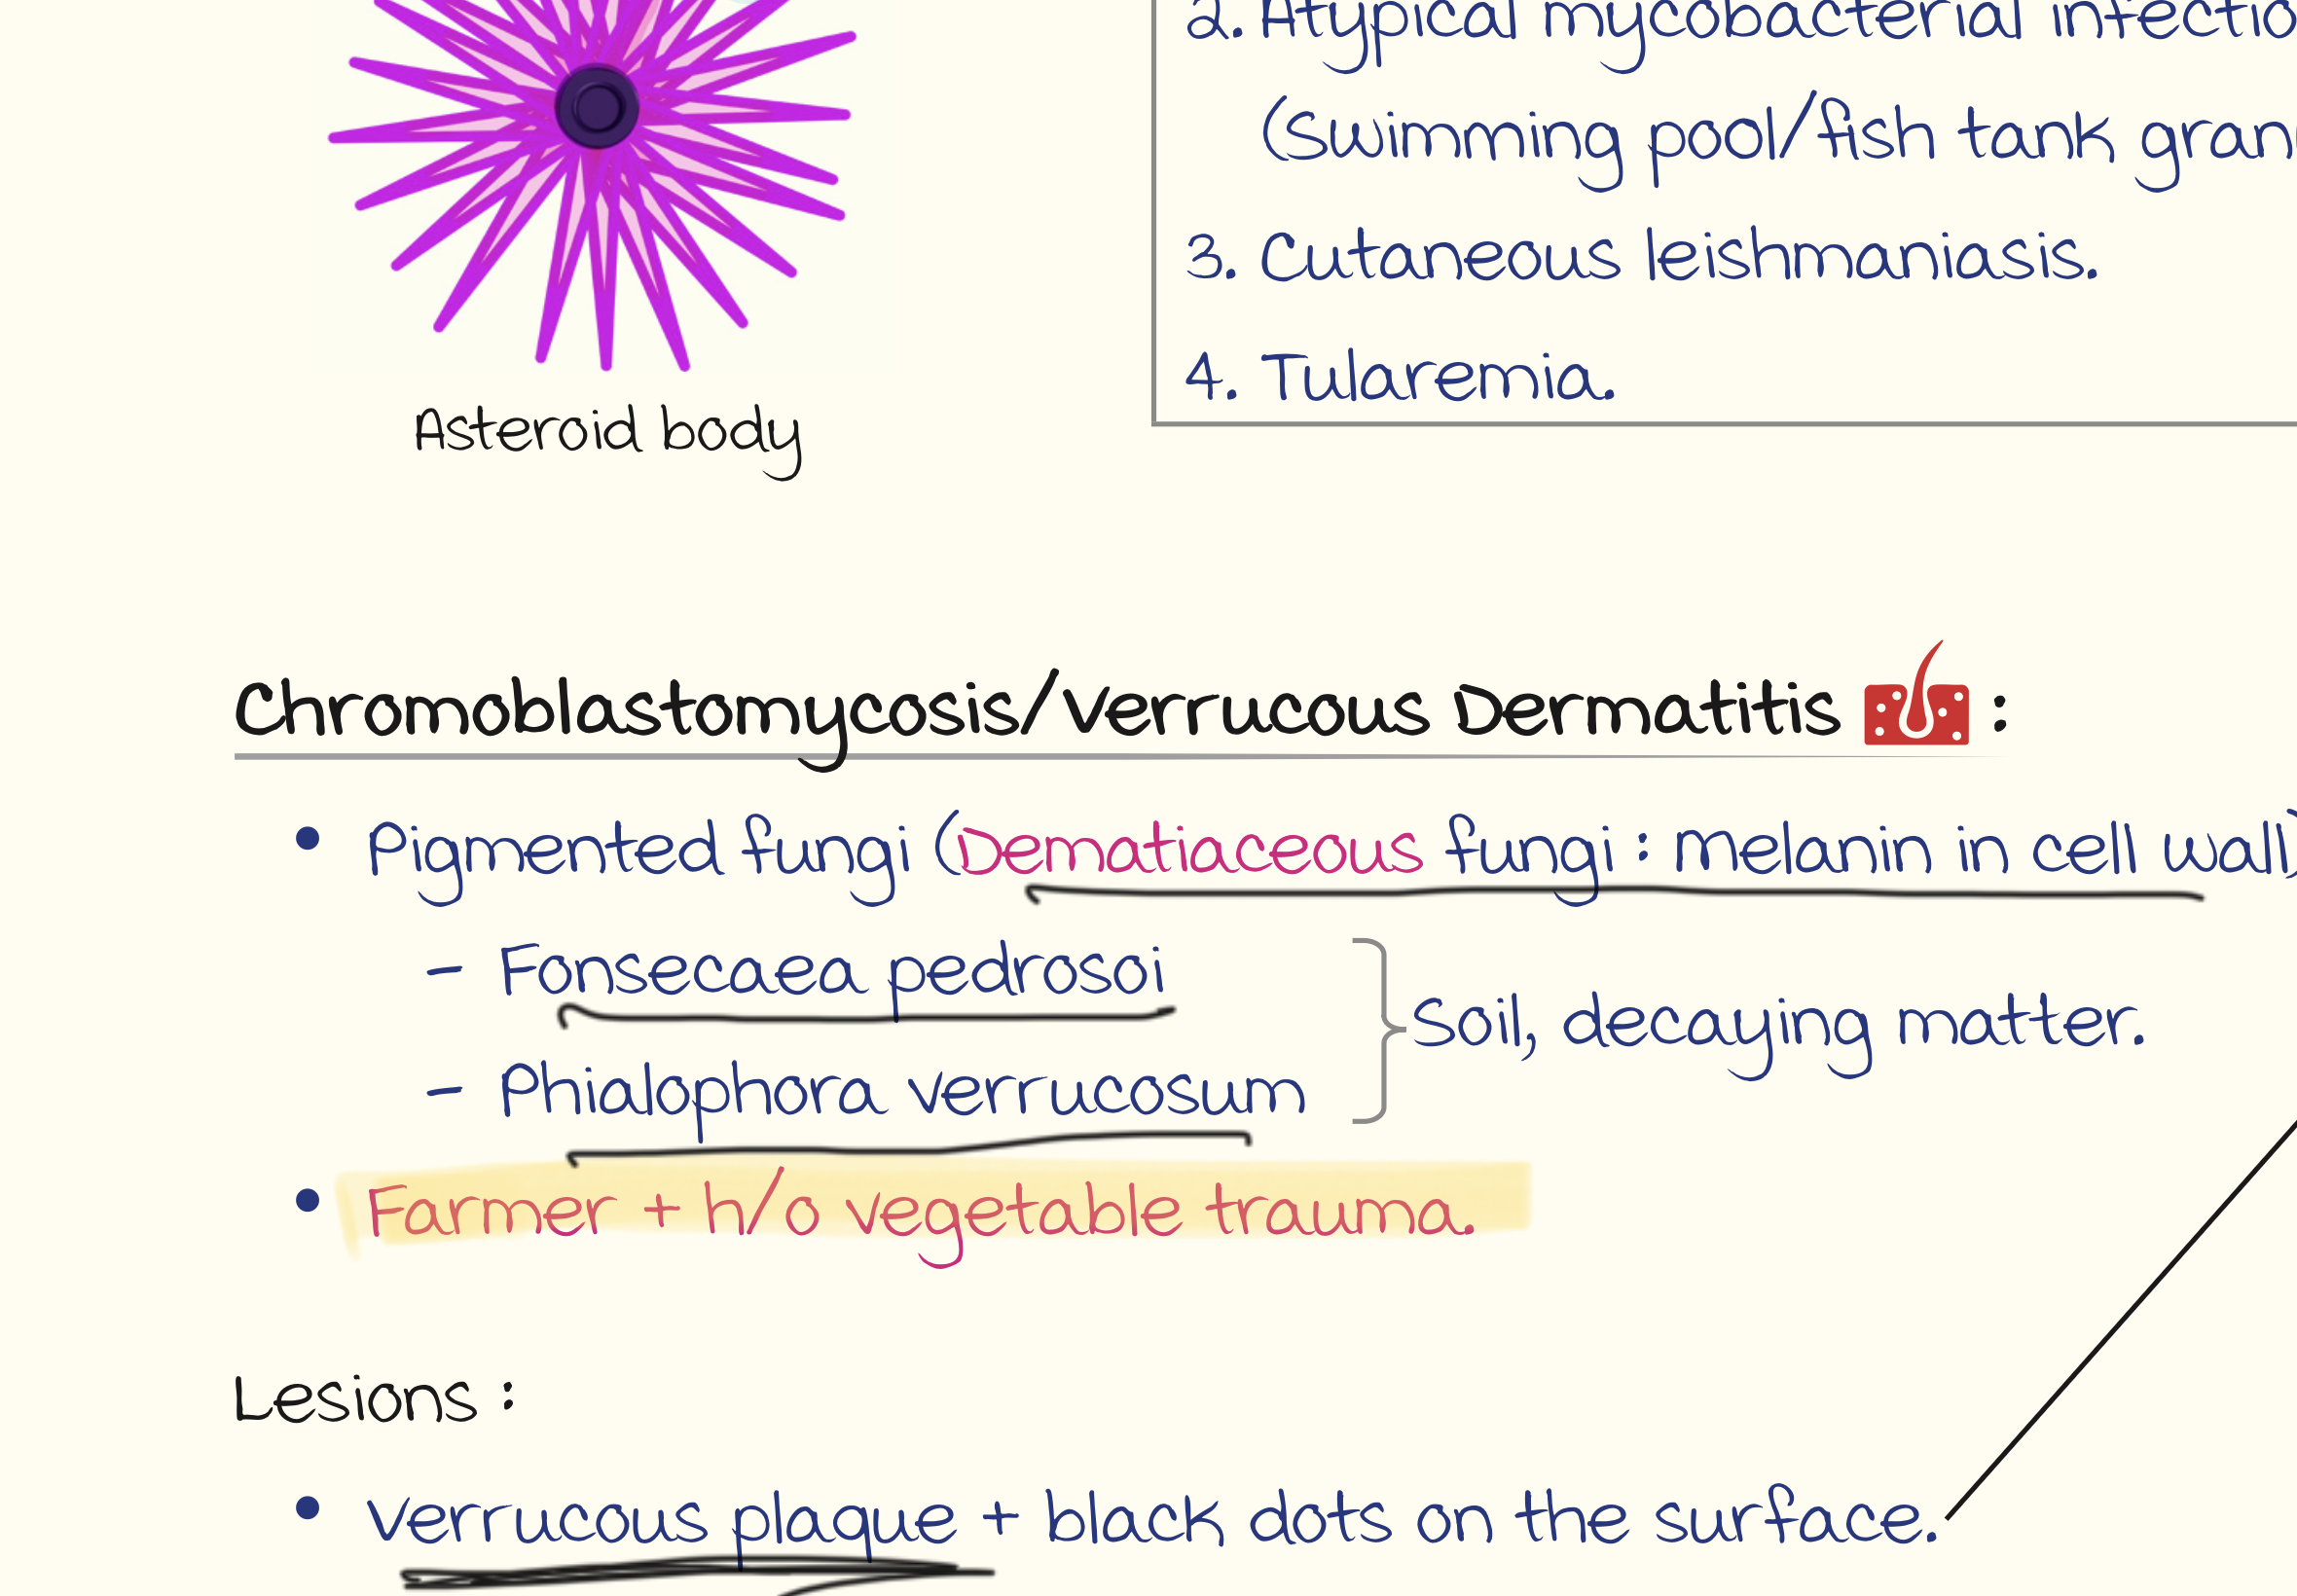 2. Atypical mycobacterial infectio
(Swimming pool/fish tank gran
3. Cutaneous leishmaniasis.
4. Tularemia.
Asteroid body
Chromoblastomycosis/Verrucous Dermatitis :
• Pigmented fungi (Dematiaceous fungi : melanin in cell wall)
- Fonsecaea pedrosoi
- Phialophora verrucosum
Soil, decaying matter.
• Farmer + h/o vegetable trauma.
Lesions :
• Verrucous plaque + black dots on the surface.